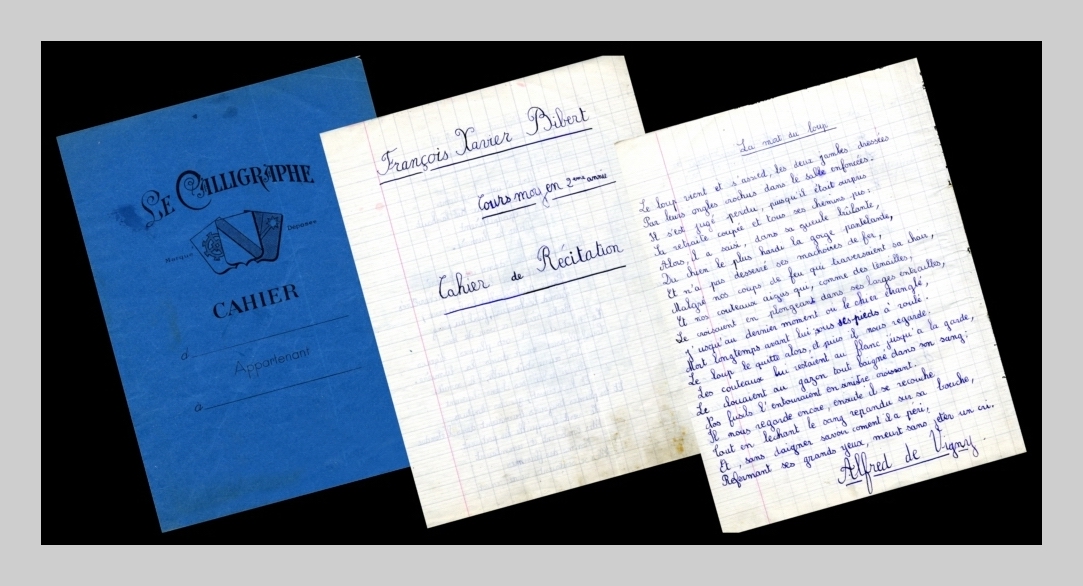 LE CALLIGRAPHE
Marque Déposée
CAHIER
d
Appartenant
a
François Xavier Bibert
Cours moyen 2eme année
Cahier de Récitation
La mort du loup
Le loup vient et s'assied, les deux jambes dressées
Par leurs ongles crochus dans le sable enfoncées.
Il s'est jugé perdu, puisqu'il était surpris
Sa retraite coupée et tous ses chemins pris;
Alors, il a saisi, dans sa gueule brûlante,
Du chien le plus hardi la gorge pantelante,
Et n'a pas desserré ses machoires de fer,
Malgré nos coups de feu qui traversaient sa chair,
Et nos couteaux aigus qui, comme des tenailles,
Se croisaient en plongeant dans ses larges entrailles,
Jusqu'au dernier moment où le chien étranglé,
Mort longtemps avant lui sous ses pieds a roulé.
Le loup le quitte alors, et puis il nous regarde.
Les couteaux lui restaient au flanc jusqu'a la garde,
Le clouaient au gazon tout baigné dans son sang;
Nos fusils l'entouraient en sinistre croissant.
Il nous regarde encore, ensuite il se recouche
Tout en léchant le sang repandu sur sa bouche,
Et, sans daigner savoir coment il a péri,
Refermant ses grands yeux, meurt sans jeter un cri.
Alfred de Vigny.